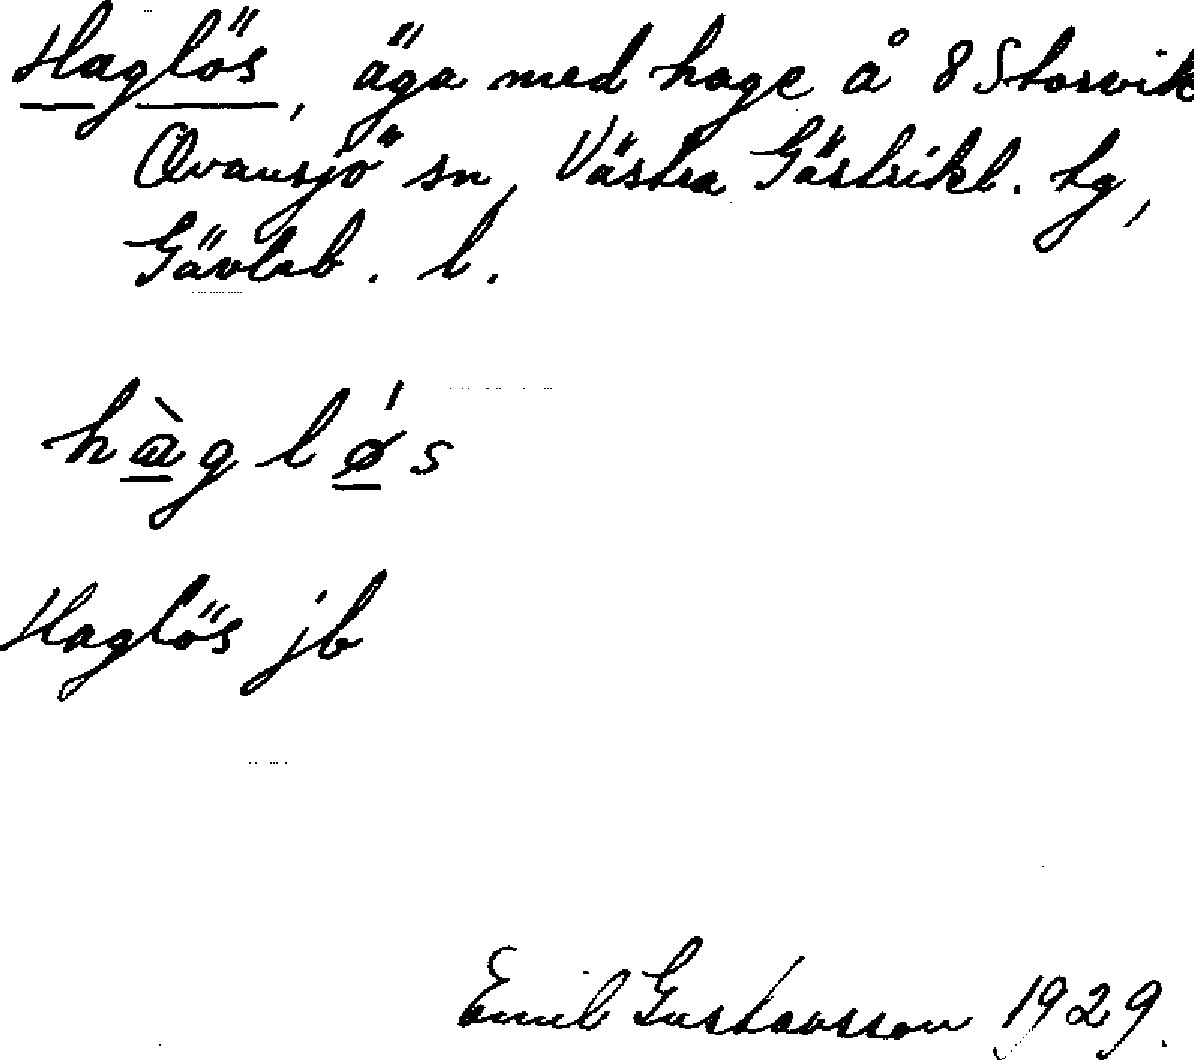 Haglös, äga med hage å 8 Storvik
Ovansjö sn, Västra Gästrikl. tg,
Gävleb. l.
hàgløʹs
Haglös jb
Emil Gustavsson 1929.